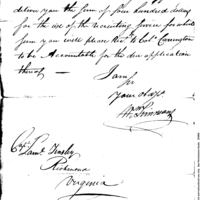 deliver you the sum of four hundred dollars
for the use of the recruiting service for which
sum you will please to Colo. Carrington
to be Accountable for the due application
thereof
I am Sir
your Obt
Wm Simmons
Saml. Tinsley
Richmond
Virginia